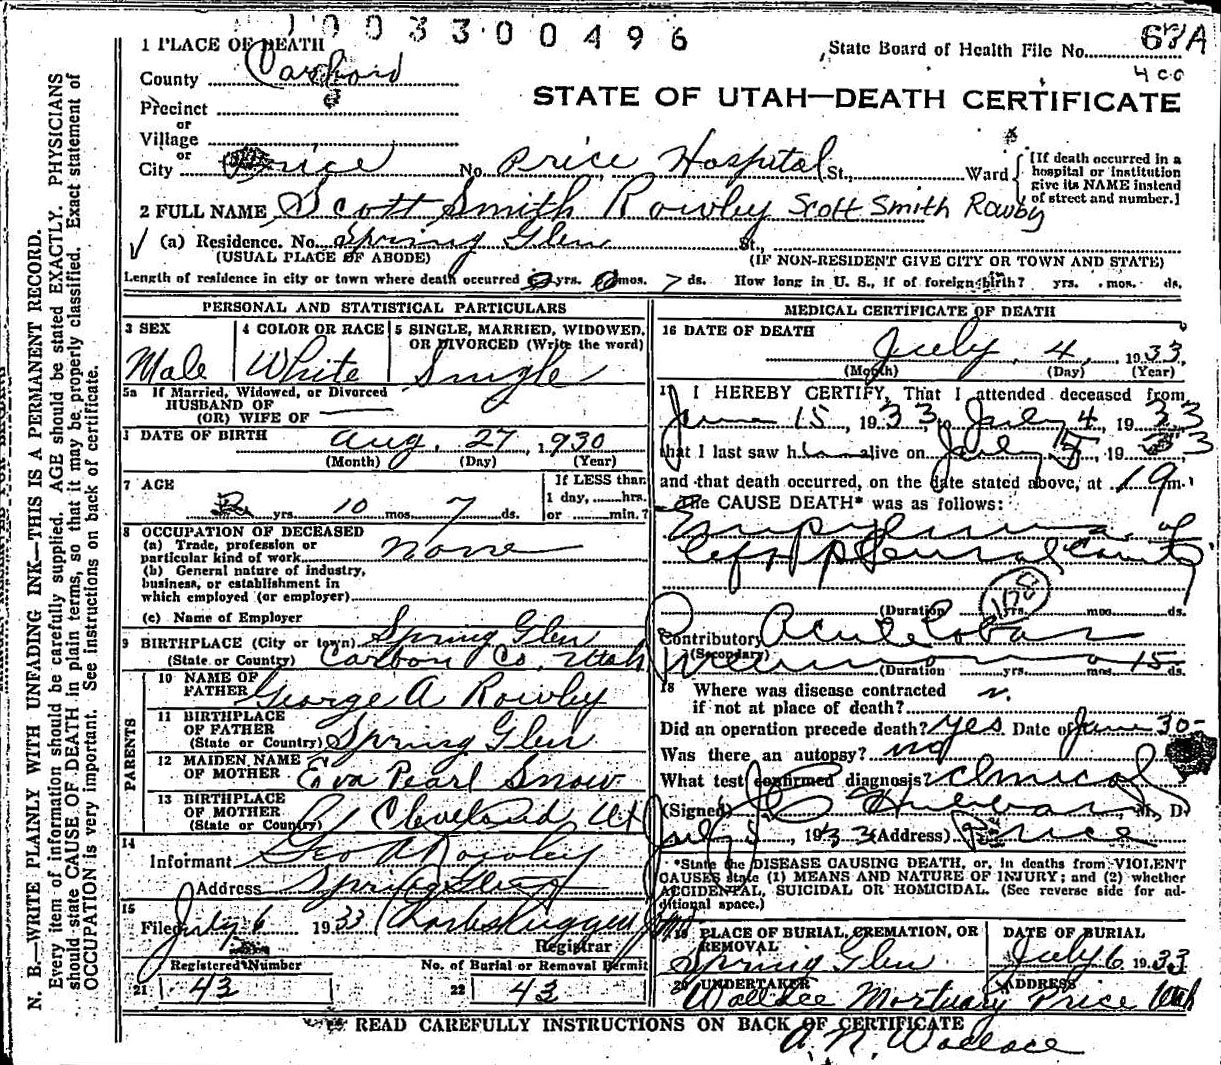 1003300496
State Board of Health File No. 63A
400
1 PLACE OF DEATH
County Carbon
STATE OF UTAH—DEATH CERTIFICATE
Precinct
or
Village
or
City Price No. Price Hospital St., Ward
[If death occurred in a hospital or institution give its NAME instead of street and number.]
2 FULL NAME Scott Smith Rowley Scott Smith Rowby
(a) Residence. No. Spring Glen St.,
(USUAL PLACE OF ABODE) (IF NON-RESIDENT GIVE CITY OR TOWN AND STATE)
Length of residence in city or town where death occurred yrs. mos. 7 ds. How long in U. S., if of foreign birth? yrs. mos. ds.
PERSONAL AND STATISTICAL PARTICULARS
3 SEX
Male
4 COLOR OR RACE
White
5 SINGLE, MARRIED, WIDOWED,
OR DIVORCED (Write the word)
Single
5a If Married, Widowed, or Divorced
HUSBAND OF
(OR) WIFE OF
DATE OF BIRTH Aug. 27, 1930
(Month) (Day) (Year)
7 AGE
2 yrs. 10 mos. 7 ds.
If LESS than
1 day, hrs.
or min.?
8 OCCUPATION OF DECEASED
(a) Trade, profession or
particular kind of work none
(b) General nature of industry,
business, or establishment in
which employed (or employer)
(c) Name of Employer
9 BIRTHPLACE (City or town) Spring Glen
(State or Country) Carbon Co. Utah
PARENTS
10 NAME OF
FATHER George A Rowley
11 BIRTHPLACE
OF FATHER
(State or Country) Spring Glen
12 MAIDEN NAME
OF MOTHER Eva Pearl Snow
13 BIRTHPLACE
OF MOTHER
(State or Country) Cleveland Ut
14
Informant Geo A Rowley
Address Spring Glen
15
Filed July 6 1933
Registrar
Registered Number
21 43
No. of Burial or Removal Permit
22 43
MEDICAL CERTIFICATE OF DEATH
16 DATE OF DEATH
July 4, 1933
(Month) (Day) (Year)
17 I HEREBY CERTIFY, That I attended deceased from
June 15, 1933, July 4, 1933
that I last saw him alive on July 1933
and that death occurred, on the date stated above, at m.
The CAUSE DEATH* was as follows:
Empyema of
left pleural cavity
(Duration yrs. mos. ds.
Contributory Acute Lobar
(Secondary)
Pneumonia
(Duration yrs. mos. 15 ds.
18 Where was disease contracted
if not at place of death?
Did an operation precede death? yes Date of June 30-
Was there an autopsy? no
What test confirmed diagnosis? clinical
(Signed) M. D.
July 1933 (Address) Price
*State the DISEASE CAUSING DEATH, or, in deaths from VIOLENT
CAUSES state (1) MEANS AND NATURE OF INJURY; and (2) whether
ACCIDENTAL, SUICIDAL OR HOMICIDAL. (See reverse side for ad-
ditional space.)
19 PLACE OF BURIAL, CREMATION, OR
REMOVAL
Spring Glen
DATE OF BURIAL
July 6 1933
20 UNDERTAKER ADDRESS
Wallace Mortuary Price Utah
READ CAREFULLY INSTRUCTIONS ON BACK OF CERTIFICATE
A. N. Wallace
N. B.—WRITE PLAINLY WITH UNFADING INK—THIS IS A PERMANENT RECORD.
Every item of information should be carefully supplied. AGE should be stated EXACTLY. PHYSICIANS
should state CAUSE OF DEATH in plain terms, so that it may be properly classified. Exact statement of
OCCUPATION is very important. See instructions on back of certificate.